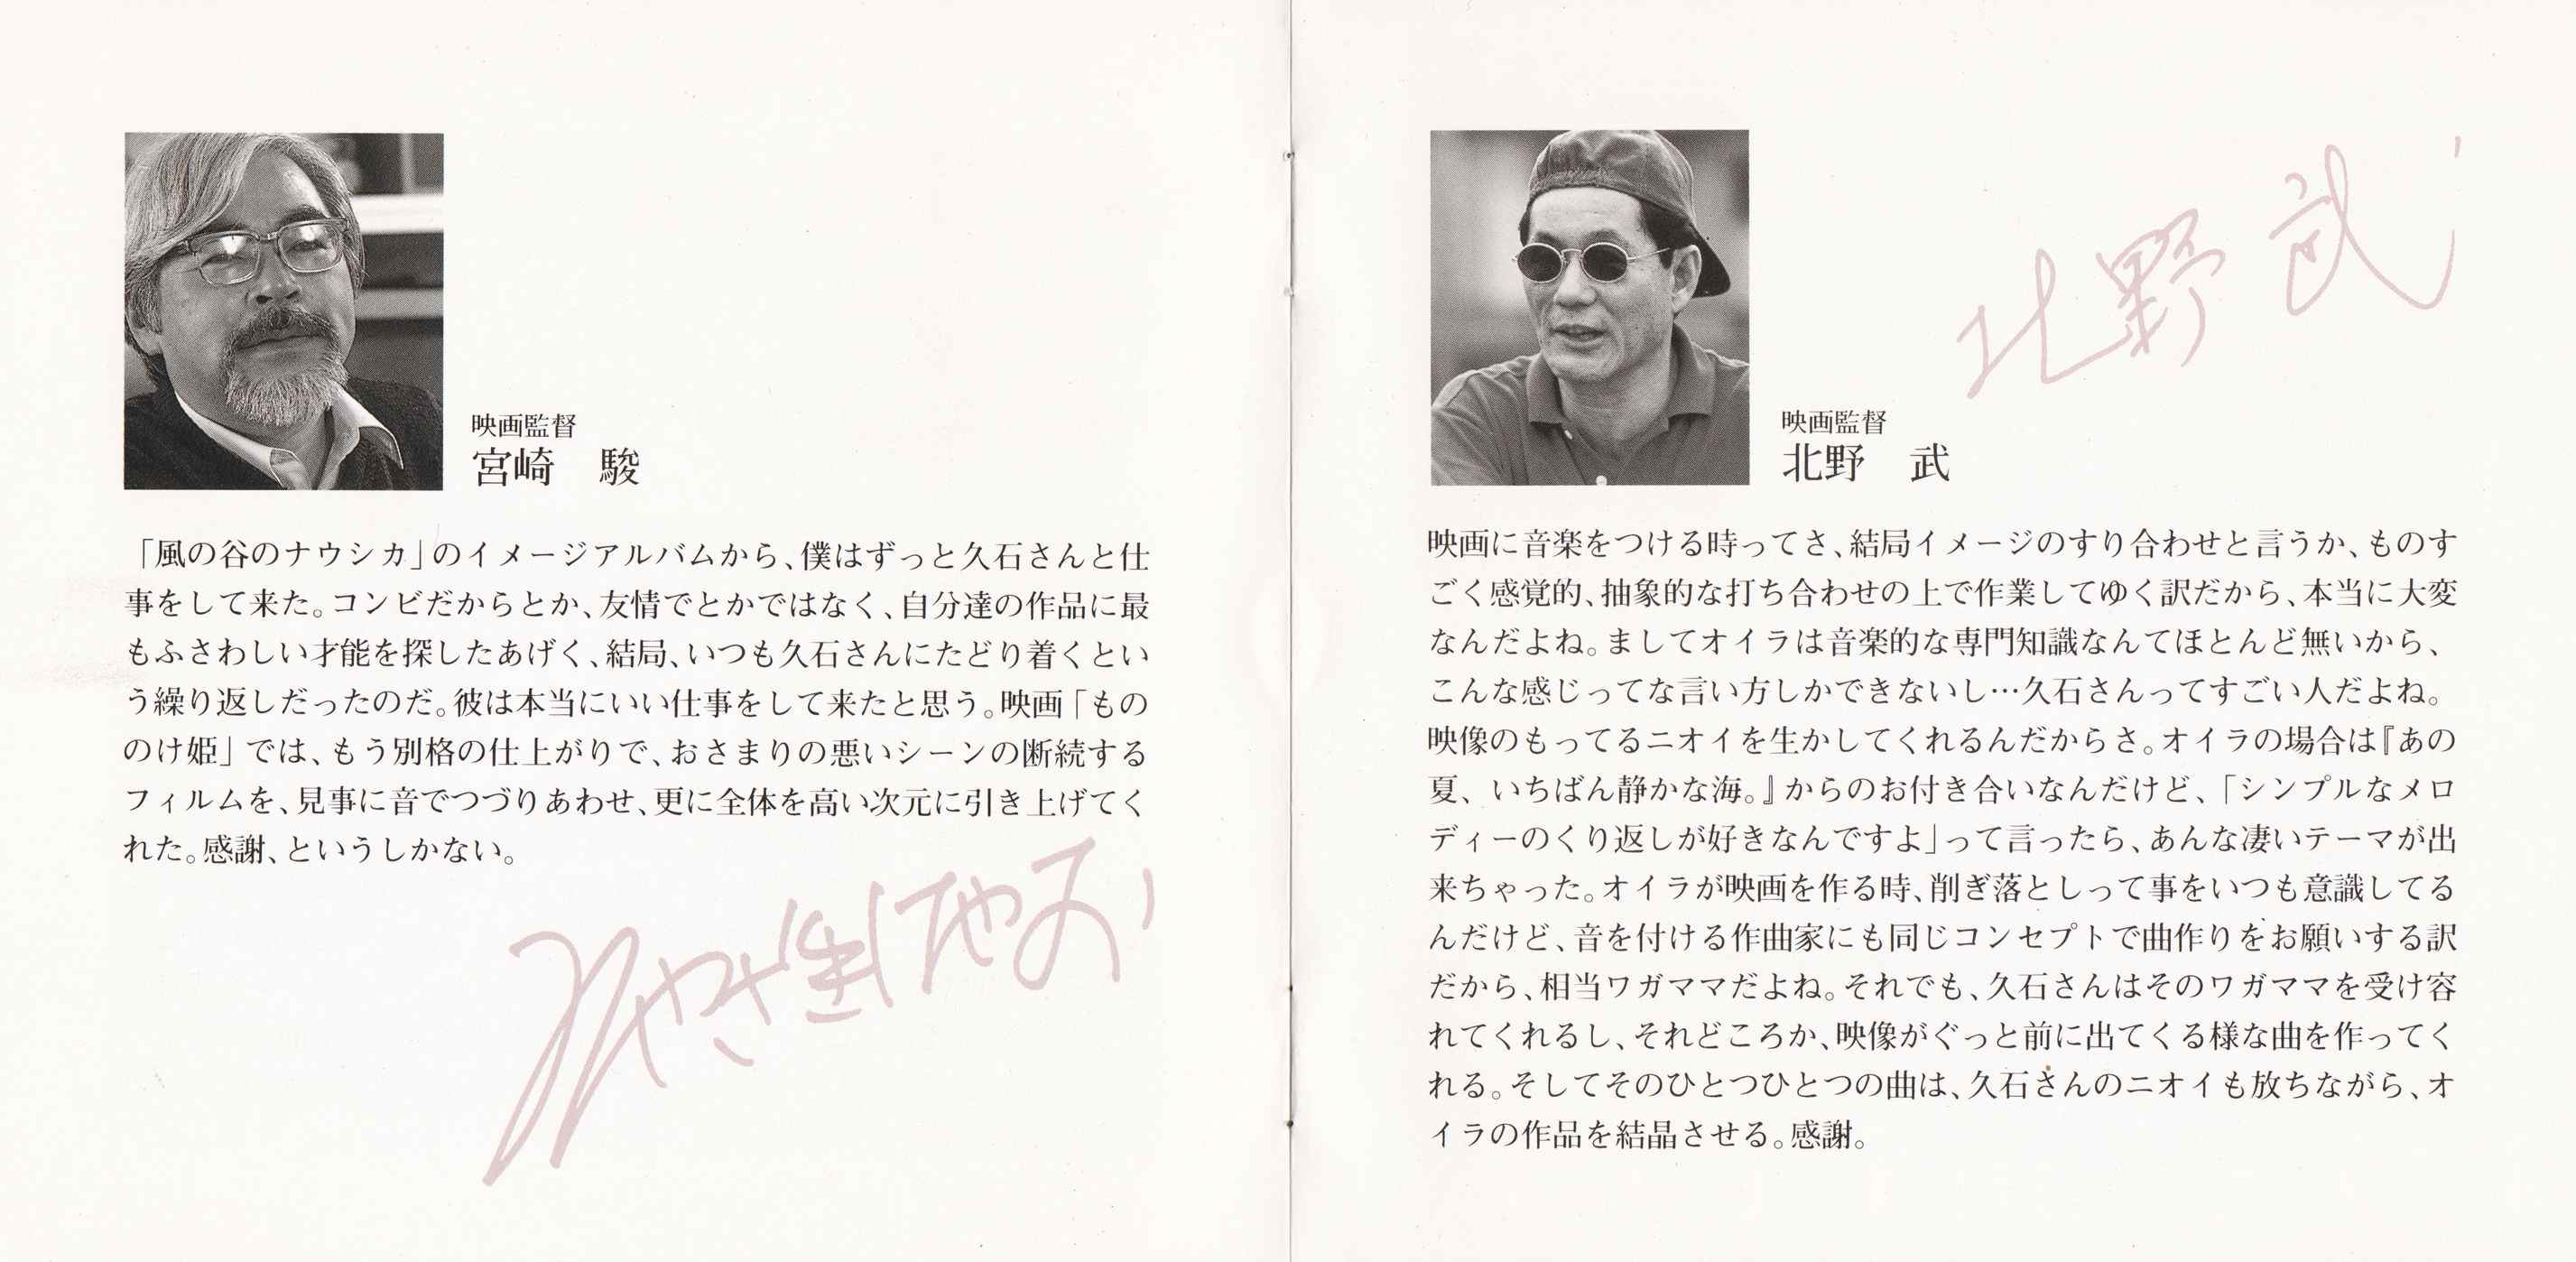 映画監督
宮崎　駿
「風の谷のナウシカ」のイメージアルバムから、僕はずっと久石さんと仕
事をして来た。コンビだからとか、友情でとかではなく、自分達の作品に最
もふさわしい才能を探したあげく、結局、いつも久石さんにたどり着くとい
う繰り返しだったのだ。彼は本当にいい仕事をして来たと思う。映画「もの
のけ姫」では、もう別格の仕上がりで、おさまりの悪いシーンの断続する
フィルムを、見事に音でつづりあわせ、更に全体を高い次元に引き上げてく
れた。感謝、というしかない。
北野武
映画監督
北野　武
映画に音楽をつける時ってさ、結局イメージのすり合わせと言うか、ものす
ごく感覚的、抽象的な打ち合わせの上で作業してゆく訳だから、本当に大変
なんだよね。ましてオイラは音楽的な専門知識なんてほとんど無いから、
こんな感じってな言い方しかできないし…久石さんってすごい人だよね。
映像のもってるニオイを生かしてくれるんだからさ。オイラの場合は『あの
夏、いちばん静かな海。』からのお付き合いなんだけど、「シンプルなメロ
ディーのくり返しが好きなんですよ」って言ったら、あんな凄いテーマが出
来ちゃった。オイラが映画を作る時、削ぎ落としって事をいつも意識してる
んだけど、音を付ける作曲家にも同じコンセプトで曲作りをお願いする訳
だから、相当ワガママだよね。それでも、久石さんはそのワガママを受け容
れてくれるし、それどころか、映像がぐっと前に出てくる様な曲を作ってく
れる。そしてそのひとつひとつの曲は、久石さんのニオイも放ちながら、オ
イラの作品を結晶させる。感謝。